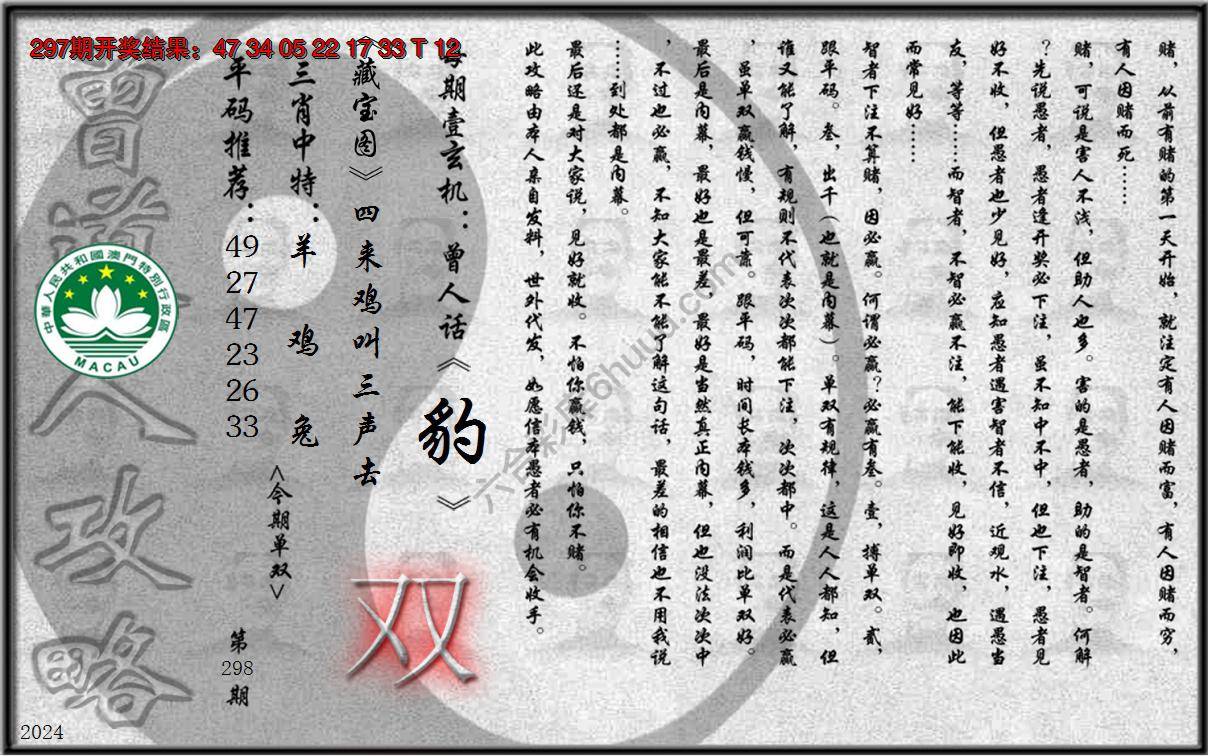 297期开奖结果：47 34 05 22 17 33 T 12
赌，从前有赌的第一天开始，就注定有人因赌而富，有人因赌而穷，
有人因赌而死……
赌，可说是害人不浅，但助人也多。害的是愚者，助的是智者。何解
？先说愚者，愚者逢开奖必下注，虽不知中不中，但也下注，愚者见
好不收，但愚者也少见好，应知愚者遇害智者不信，近观水，遇愚当
友，等等……而智者，不智必赢不注，能下能收，见好即收，也因此
而常见好……
智者下注不算赌，因必赢。何谓必赢？必赢有叁。壹，搏单双。贰，
跟平码。叁，出千（也就是内幕）。单双有规律，这是人人都知，但
谁又能了解，有规则不代表次次都能下注，次次都中。而是代表必赢
，虽单双赢钱慢，但可靠。跟平码，时间长本钱多，利润比单双好。
最后是内幕，最好也是最差，最好是当然真正内幕，但也没法次次中
，不过也必赢，不知大家能不能了解这句话，最差的相信也不用我说
……到处都是内幕。
最后还是对大家说，见好就收。不怕你赢钱，只怕你不赌。
此攻略由本人亲自发料，世外代发，如愿信本愚者必有机会收手。
每期壹玄机：曾人话《豹》
《藏宝图》四来鸡叫三声去
双
三肖中特：羊 鸡 兔
<今期单双>
平码推荐：
49
27
47
23
26
33
第
298
期
曾道人攻略
中華人民共和國澳門特別行政區
MACAU
六合彩库6huuu.com
2024